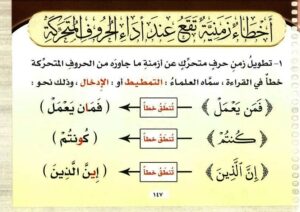 أخطاء زمنية تقع عند أداء الحروف المتحركة
١- تطويل زمن حرف متحرك عن أزمنة ما جاوره من الحروف المتحركة
خطأ في القراءة ، سماه العلماء : التمطيط أو : الإدخال ، وذلك نحو :
﴿ فَمَن يَعْمَلْ ﴾ تُنطق خطأ ( فَمَان يَعْمَلْ )
﴿ كُنتُمْ ﴾ تُنطق خطأ ( كُونتُمْ )
﴿ إِنَّ الَّذِينَ ﴾ تُنطق خطأ ( إِينَّ الَّذِينَ )
١٤٧